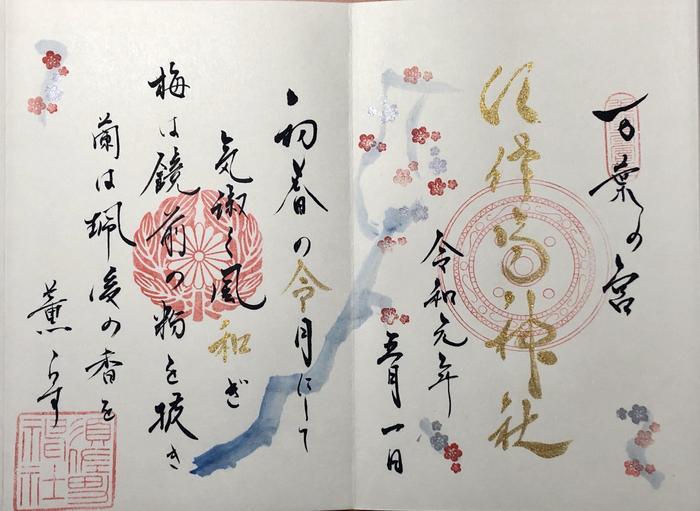 万葉の宮
須佐男神社
令和元年
五月一日
初春の令月にして
気淑く風和ぎ
梅は鏡前の粉を披き
蘭は珮後の香を
薫らす
須佐男
神社